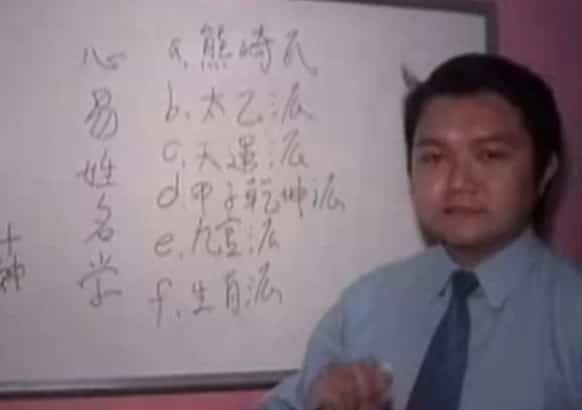 心易姓名学
a. 熊崎氏
b. 太乙派
c. 天運派
d. 甲子乾坤派
e. 九宫派
f. 生肖派
十神